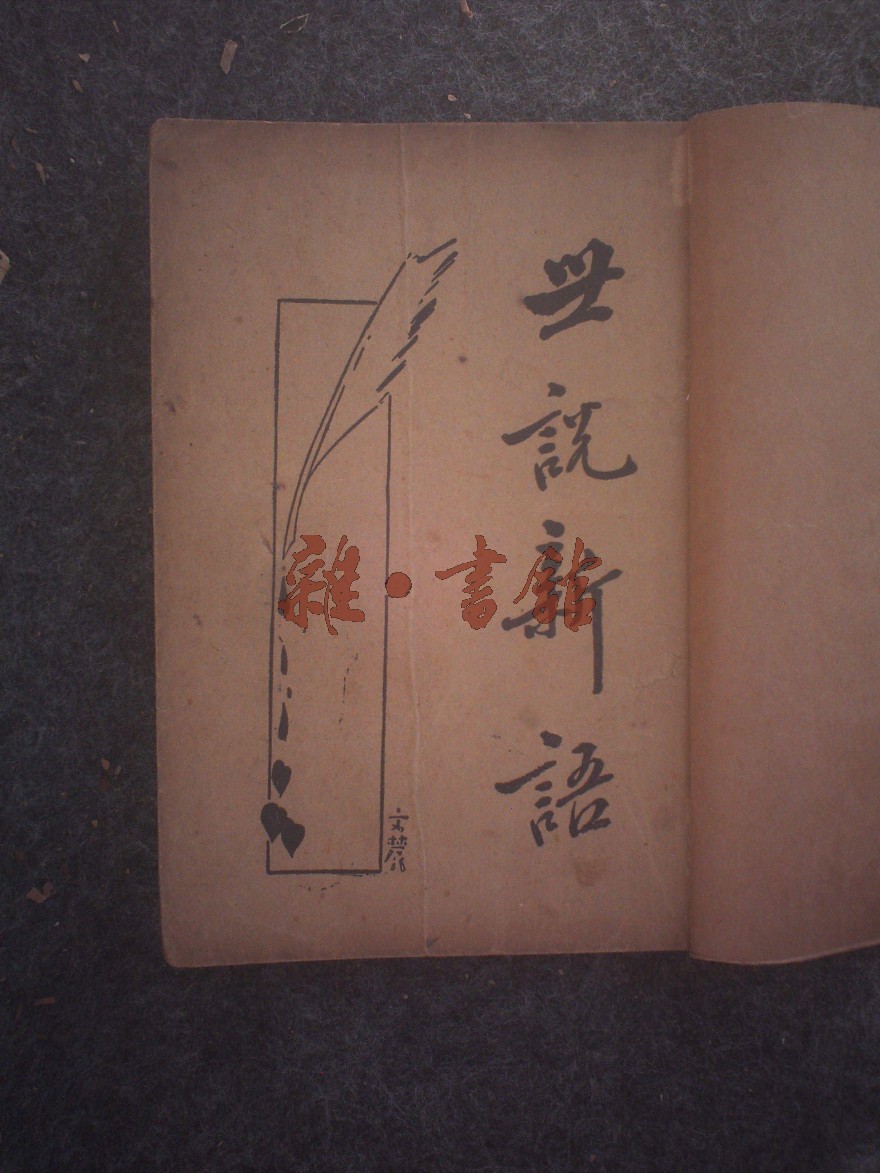 世說新語
雜·書館